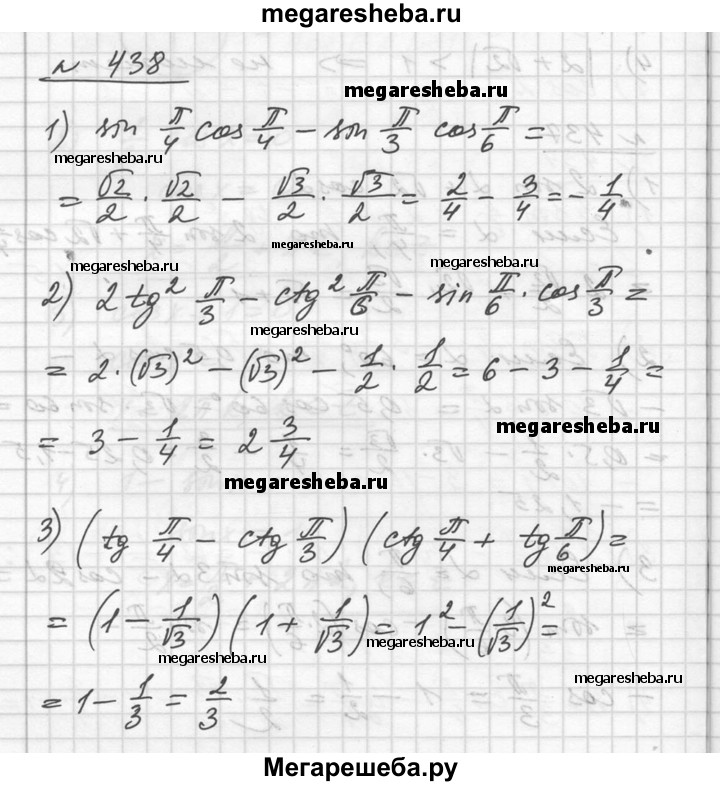 megaresheba.ru
№ 438
megaresheba.ru
1) sin π/4 cos π/4 − sin π/3 cos π/6 =
megaresheba.ru
= √2/2 · √2/2 − √3/2 · √3/2 = 2/4 − 3/4 = − 1/4
megaresheba.ru
megaresheba.ru megaresheba.ru
2) 2 tg² π/3 − ctg² π/6 − sin π/6 · cos π/3 =
megaresheba.ru
= 2 · (√3)² − (√3)² − 1/2 · 1/2 = 6 − 3 − 1/4 =
megaresheba.ru
= 3 − 1/4 = 2 3/4
megaresheba.ru
3) (tg π/4 − ctg π/3) (ctg π/4 + tg π/6) =
megaresheba.ru
= (1 − 1/√3) (1 + 1/√3) = 1² − (1/√3)² =
megaresheba.ru megaresheba.ru
megaresheba.ru
= 1 − 1/3 = 2/3
megaresheba.ru
Мегарешеба.ру